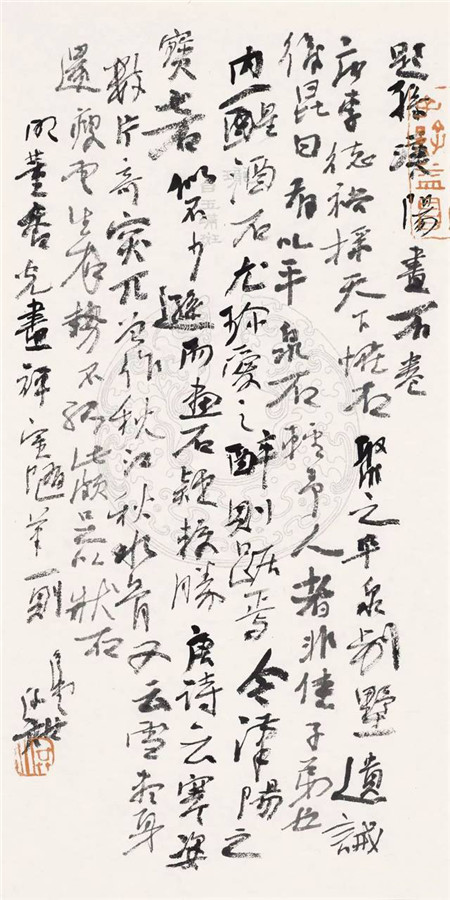 題孫漢陽畫石卷
唐李德裕採天下怪石聚之平泉別墅遺誡
後昆曰有以平泉石輕予人者非佳子弟也
內醒酒石尤珍愛之醉則踞焉今漢陽之
寶者似不少遜而畫石疑較勝唐詩云寒姿
數片奇突兀曾作秋江秋水骨又云雪盡身
還瘦雲生勢不孤此頗足以狀石
明董香光畫禪室隨筆一則